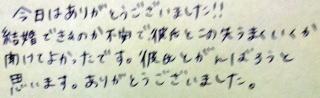 今日はありがとうございました!!
結婚できるのか不安で彼氏とこの先うまくいくか
聞けてよかったです。彼氏とがんばろうと
思います。ありがとうございました。